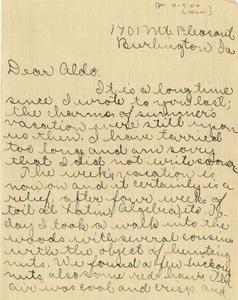 1701 Mt Pleasant
Burlington Ia
Dear Aldo;
It is a long time
since I wrote to you last;
the charms of summer
vacation were still upon
us then. I have tarried
too long and am sorry
that I did not write sooner.
The weeks vacation is
now on and it certainly is a
relief after four weeks of
toil at Latin, Algebra, etc. To-
day I took a walk into the
woods with several cousins
with the object of hunting
nuts. We found a few hickory
nuts also some red haws. The
air was cool and crisp and